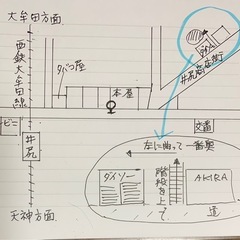 大牟田方面
西鉄大牟田線
タバコ屋
本屋
井尻商店街
ビニ
井尻
交番
左に曲って一番奥
ダイソー
階段を上って
AKIRA
道
天神方面